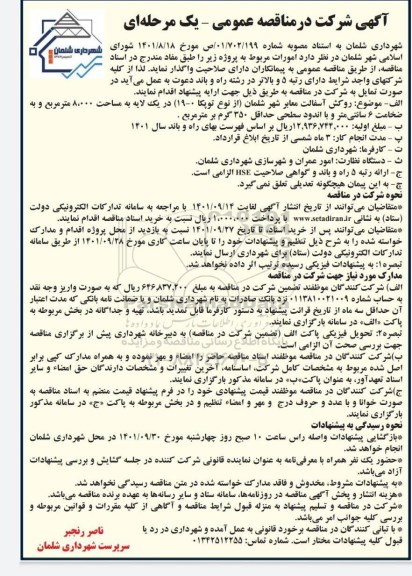 آگهی شرکت درمناقصه عمومی - یک مرحله‌ای
شهرداری شلمان
شهرداری شلمان به استناد مصوبه شماره ۰۱/۷۰۲/۱۹۹/ص مورخ ۱۴۰۱/۸/۱۸ شورای
اسلامی شهر شلمان در نظر دارد امورات مربوط به پروژه زیر را طبق مفاد مندرج در اسناد
مناقصه، از طریق مناقصه عمومی به پیمانکاران دارای صلاحیت واگذار نماید. لذا از کلیه
شرکتهای واجد شرایط دارای رتبه ۵ و بالاتر در رشته راه و باند دعوت به عمل می‌آید در
صورت تمایل به شرکت در مناقصه به طریق ذیل جهت ارایه پیشنهاد اقدام نمایند.
الف- موضوع: روکش آسفالت معابر شهر شلمان (از نوع توپکا ۰-۱۹) در یک لایه به مساحت ۸,۰۰۰ مترمربع و به
ضخامت ۶ سانتی‌متر و با اندود سطحی حداقل ۳۵۰ گرم بر مترمربع.
ب - مبلغ اولیه: ۱۲,۹۳۶,۷۴۴,۰۰۰ ریال بر اساس فهرست بهای راه و باند سال ۱۴۰۱
پ - مدت انجام کار: ۳ ماه شمسی از تاریخ ابلاغ قرارداد.
ت - کارفرما: شهرداری شلمان
ث - دستگاه نظارت: امور عمران و شهرسازی شهرداری شلمان.
ج - ارائه رتبه ۵ راه و باند و گواهی صلاحیت HSE الزامی است.
چ - به این پیمان هیچگونه تعدیلی تعلق نمی‌گیرد.
نحوه شرکت در مناقصه
*متقاضیان می‌توانند از تاریخ انتشار آگهی لغایت ۱۴۰۱/۰۹/۱۴ با مراجعه به سامانه تدارکات الکترونیکی دولت
(ستاد) به نشانی www.setadiran.ir با پرداخت ۱,۰۰۰,۰۰۰ ریال نسبت به خرید اسناد مناقصه اقدام نمایند.
*متقاضیان می‌توانند پس از خرید اسناد تا تاریخ ۱۴۰۱/۰۹/۲۷ نسبت به بازدید از محل پروژه اقدام و مدارک
خواسته شده را به شرح ذیل تنظیم و پیشنهادات خود را تا پایان ساعت کاری مورخ ۱۴۰۱/۰۹/۲۸ از طریق سامانه
تدارکات الکترونیکی دولت (ستاد) برای شهرداری ارسال نمایند.
تبصره۱: به پیشنهادات فیزیکی رسیده ترتیب اثر داده نخواهد شد.
مدارک مورد نیاز جهت شرکت در مناقصه
الف) شرکت‌کنندگان موظفند تضمین شرکت در مناقصه به مبلغ ۶۴۶,۸۳۷,۲۰۰ ریال که به صورت واریز وجه نقد
به حساب شماره ۰۱۱۳۸۱۰۰۲۱۰۰۹ نزد بانک صادرات به نام شهرداری شلمان و یا ضمانت نامه بانکی که مدت اعتبار
آن حداقل سه ماه از تاریخ قرائت پیشنهاد به دستور کارفرما قابل تمدید باشد، تهیه و جداگانه در بخش مربوطه به
پاکت «الف» در سامانه بارگزاری نمایند.
تبصره۲: تحویل فیزیکی پاکت الف (تضمین شرکت در مناقصه) به دبیرخانه شهرداری پیش از برگزاری مناقصه
جهت بررسی صحت آن الزامی است.
ب)شرکت کنندگان در مناقصه موظفند اسناد مناقصه حاضر را امضاء و مهر نموده و به همراه مدارک کپی برابر
اصل شده مربوط به مشخصات کامل شرکت، اساسنامه، آخرین تغییرات و مشخصات دارندگان حق امضاء و سایر
اسناد تعهدآور، به عنوان پاکت«ب» در سامانه مذکور بارگزاری نمایند.
ج)شرکت کنندگان در مناقصه موظفند قیمت پیشنهادی خود را در فرم پیشنهاد قیمت منضم به اسناد مناقصه به
صورت خوانا و با عدد و حروف درج و مهر و امضاء تنظیم و در بخش مربوطه به پاکت «ج» در سامانه مذکور
بارگزاری نمایند.
نحوه رسیدگی به پیشنهادات
*بازگشایی پیشنهادات واصله راس ساعت ۱۰ صبح روز چهارشنبه مورخ ۱۴۰۱/۰۹/۳۰ در محل شهرداری شلمان
انجام خواهد شد.
*حضور یک نفر همراه با معرفی‌نامه به عنوان نماینده قانونی شرکت کننده در جلسه گشایش و بررسی پیشنهادات
آزاد می‌باشد.
*به پیشنهادات مشروط، مخدوش و فاقد مدارک خواسته شده در متن مناقصه رسیدگی نخواهد شد.
*هزینه انتشار و پخش آگهی مناقصه در روزنامه‌ها، سامانه ستاد و سایر رسانه‌ها به عهده برنده مناقصه می‌باشد.
*شرکت در مناقصه و تسلیم پیشنهاد به منزله قبول شرایط مناقصه و آگاهی از کلیه مقررات و قوانین مربوطه و
بررسی کلیه جوانب امر می‌باشد.
* با تبانی کنندگان در مناقصه برخورد قانونی به عمل آمده و شهرداری در رد یا
قبول کلیه پیشنهادات مختار است. شماره تماس: ۰۱۳۴۲۵۱۲۲۵۵
ناصر رنجبر
سرپرست شهرداری شلمان